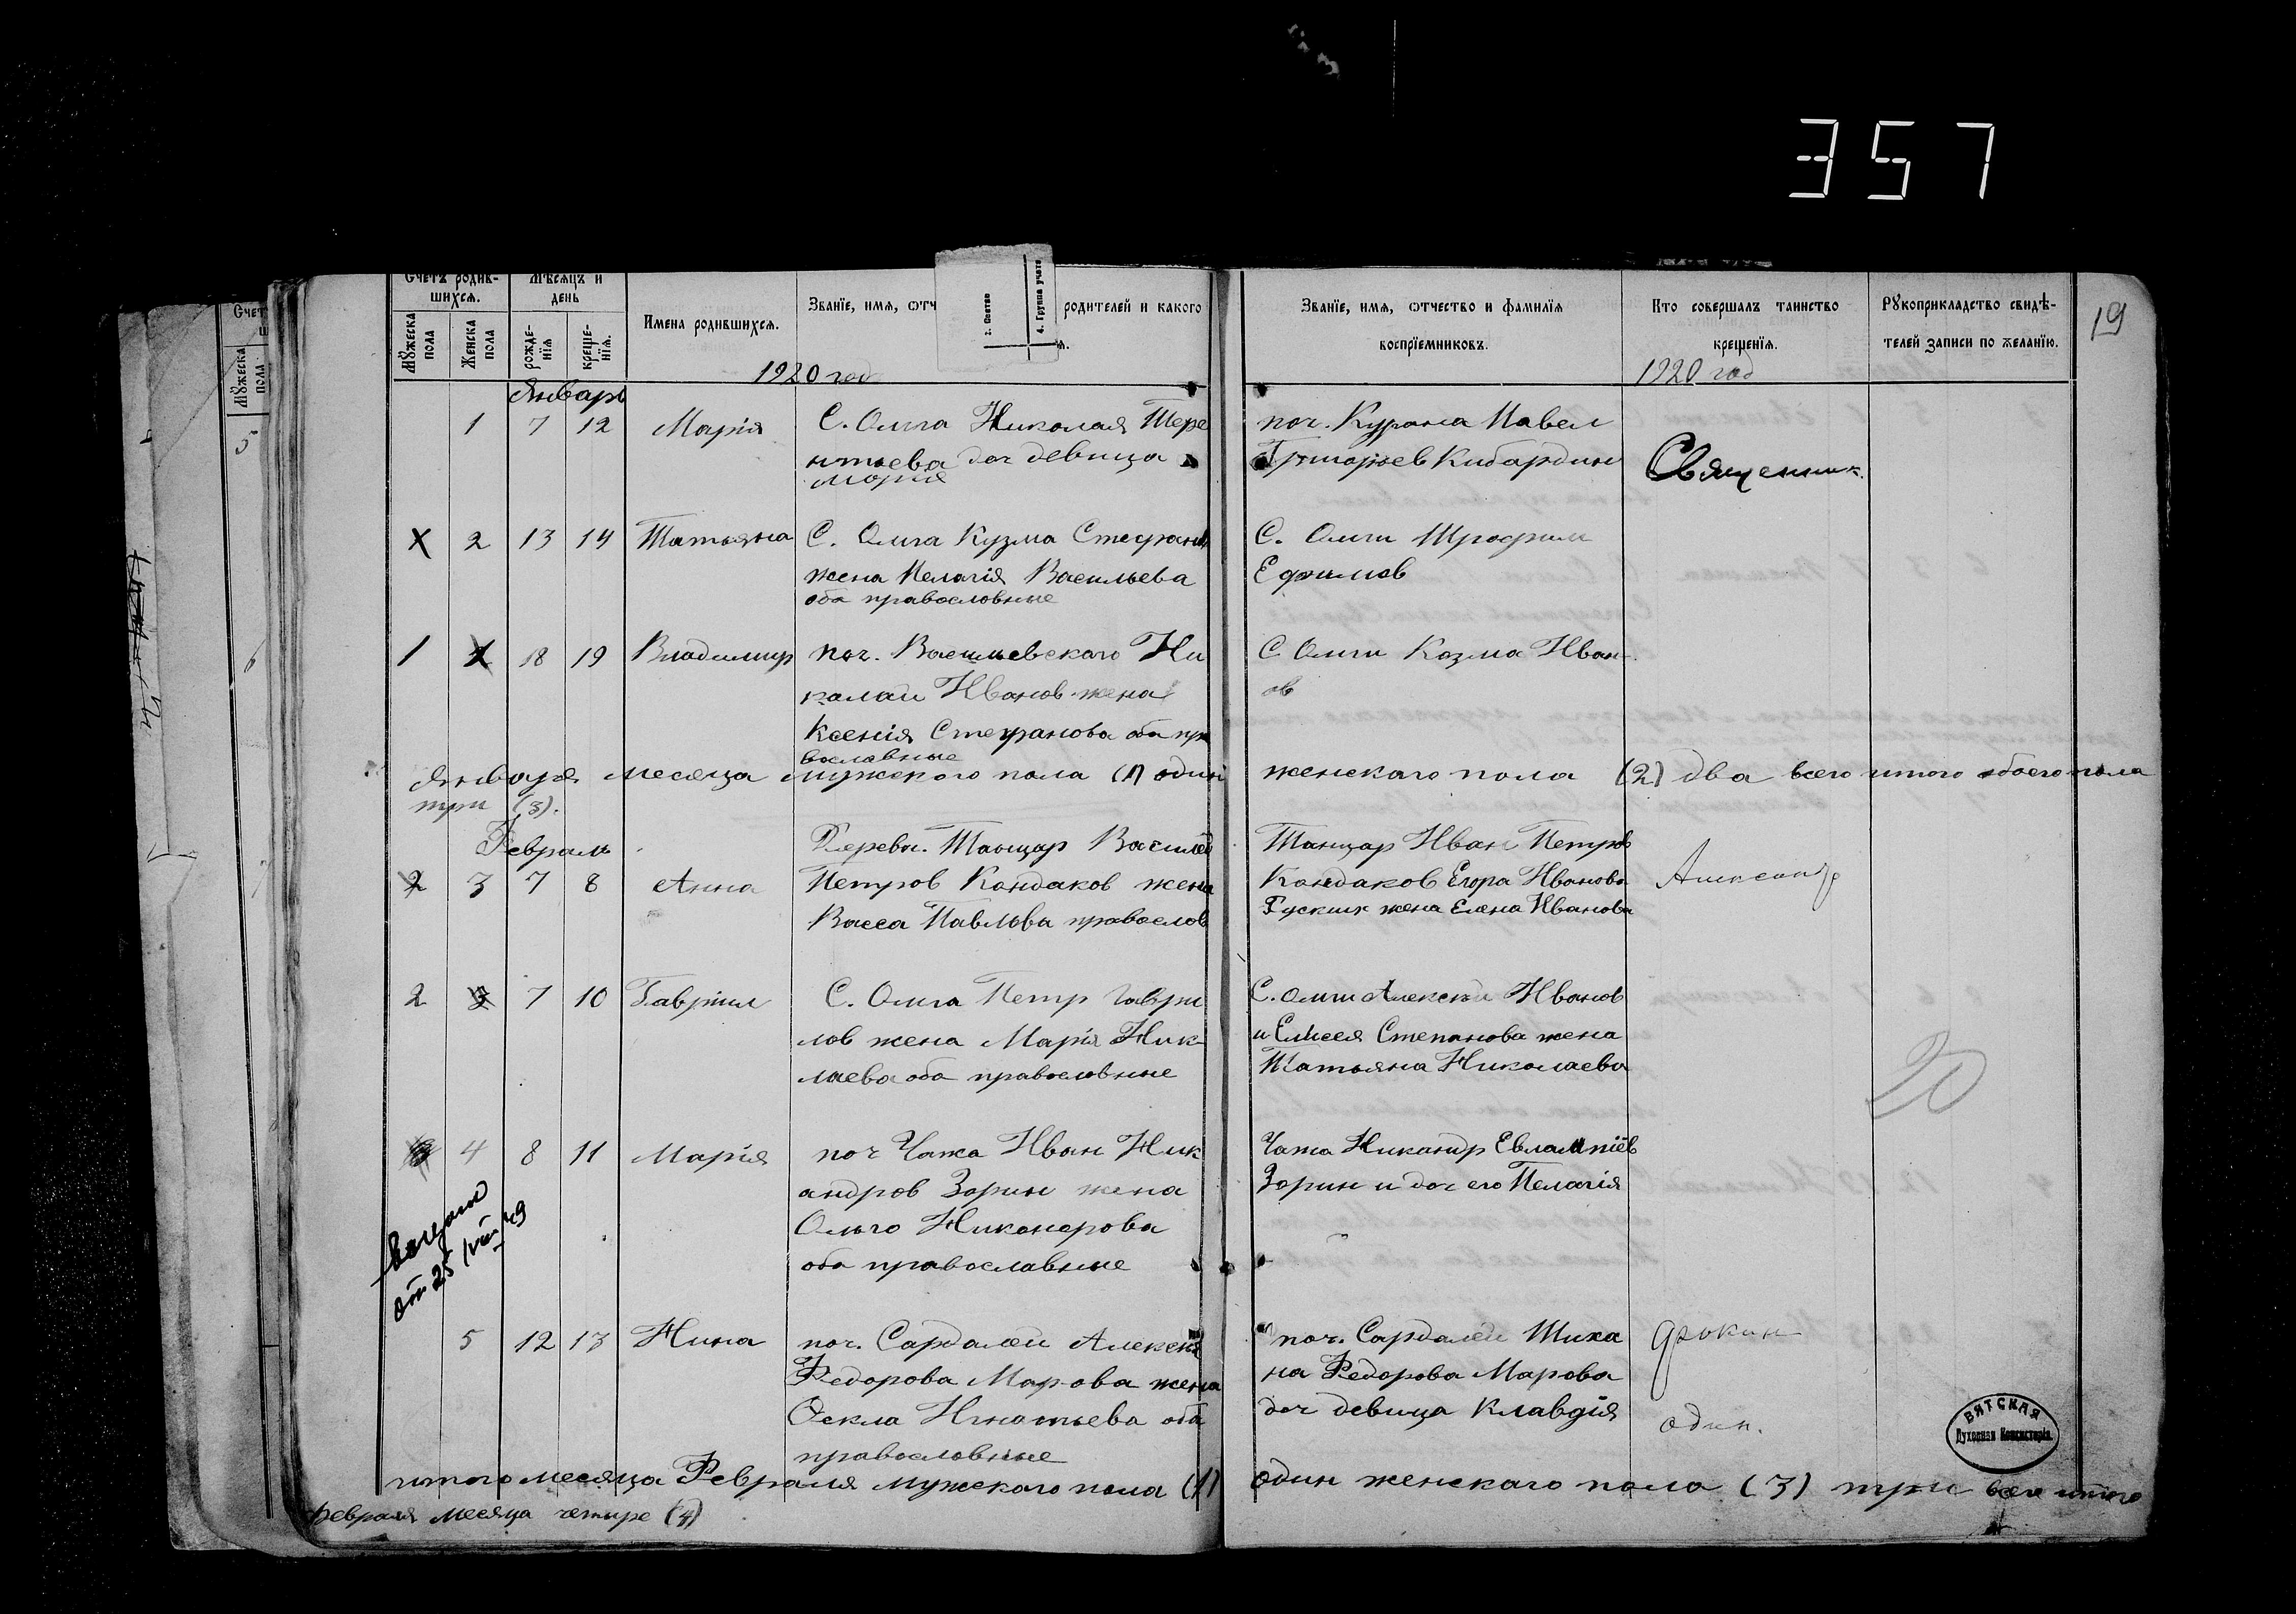 357
19
Счетъ родив-
шихся.
Мѣсяцъ и
день
Мужеска
пола
Женска
пола
рожде-
нія
креще-
нія.
Имена родившихся.
Званіе, имя, отч
родителей и какого
2. Состав
4. Группа учета
Званіе, имя, отчество и фамилія
воспріемниковъ.
Кто совершалъ таинство
крещенія.
Рукоприкладство свидѣ-
телей записи по желанію.
1920 год
1920 год
Январь
1 7 12 Марія С. Олыга Николая Тере
нтьева доч девица
Марія
поч. Курана Павел
Григорьев Кибардин
Священник.
2 13 14 Татьяна С. Олыга Кузма Стефанов
жена Пелагія Васильева
оба православные
С. Олыги Трофим
Ефимов
1 18 19 Владимир поч. Васильевскаго Ни
калай Иванов жена
Ксенія Стефанова оба пра
вославные
С Олыги Козма Иван-
ов
Января месяца мужского пола (1) один женскаго пола (2) два всего итого обоего пола
три (3).
Февраль
3 7 8 Анна Дерева. Танцар Василей
Петров Кандаков жена
Васса Павлова православ
Танцар Иван Петров
Кандаков Егора Иванова
жена Елена Иванова
Александр
2 7 10 Гавріил С. Олыга Петр Гаври
лов жена Марія Ник-
лаева оба православные
С. Олыги Алексей Иванов
и Елисея Степанова жена
Татьяна Николаева
20
4 8 11 Марія поч Чажа Иван Ник
андров Зорин жена
Ольго Никонорова
оба православные
Чажа Никандр Евлампіев
Зорин и доч его Пелагія
от 25
5 12 13 Нина поч. Сардалей Алексея
Федорова Марова жена
Фекла Игнатьева оба
православные
поч. Сардалей Тиха
на Федорова Марова
доч девица Клавдія
Фокин
один.
ВЯТСКАЯ
Духовная Консисторія.
итого месяца Февраля мужскаго пола (1) один женскаго пола (3) три всего итого
февраля месяца четыре (4)